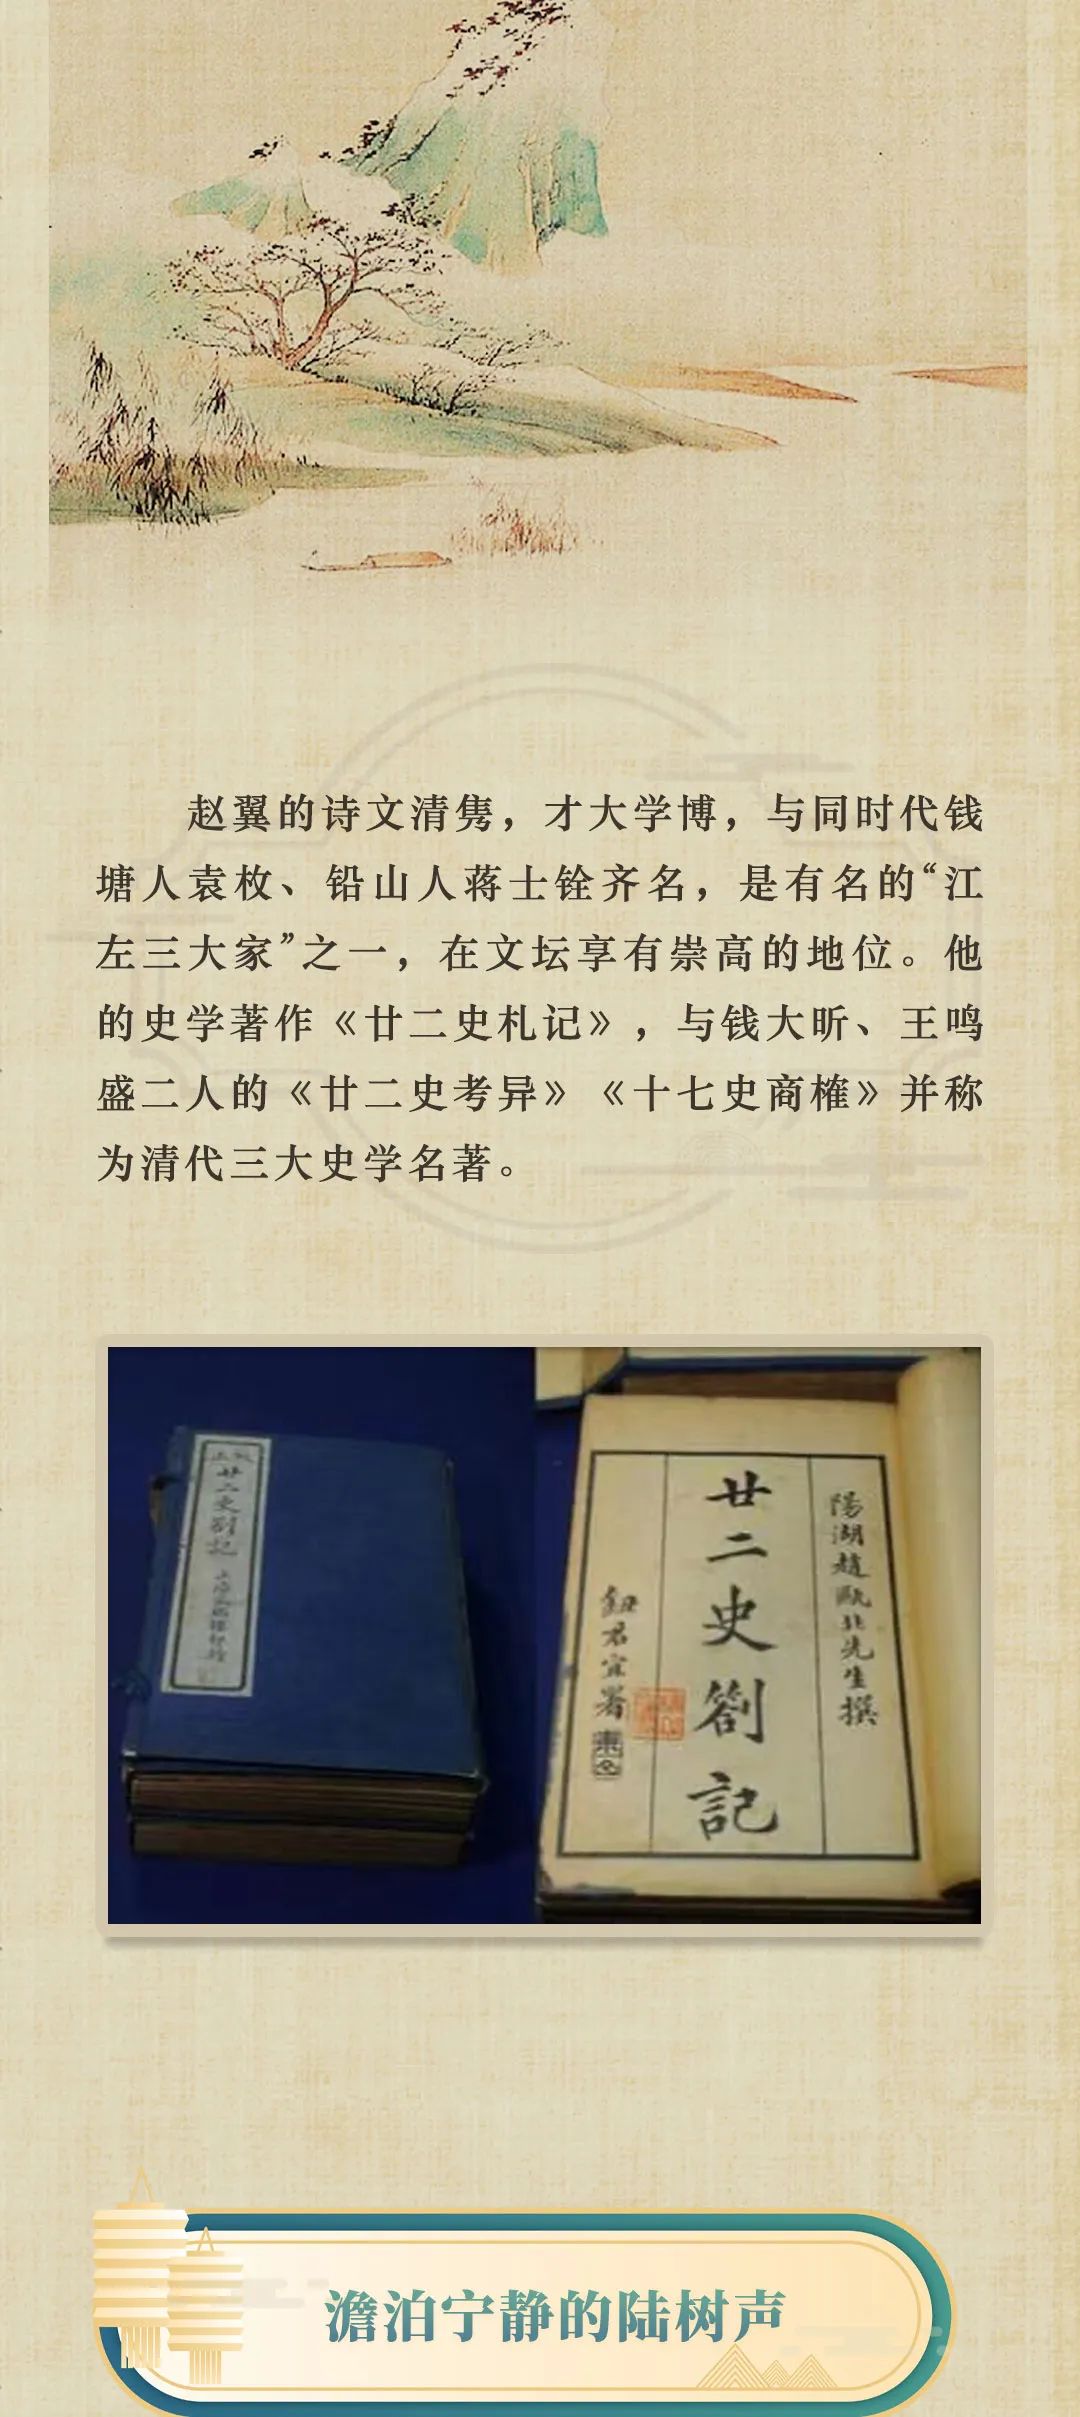 赵翼的诗文清隽，才大学博，与同时代钱
塘人袁枚、铅山人蒋士铨齐名，是有名的“江
左三大家”之一，在文坛享有崇高的地位。他
的史学著作《廿二史札记》，与钱大昕、王鸣
盛二人的《廿二史考异》《十七史商榷》并称
为清代三大史学名著。
廿二史劄記
陽湖趙甌北先生撰
廿二史劄記
鈕君宜署
澹泊宁静的陆树声